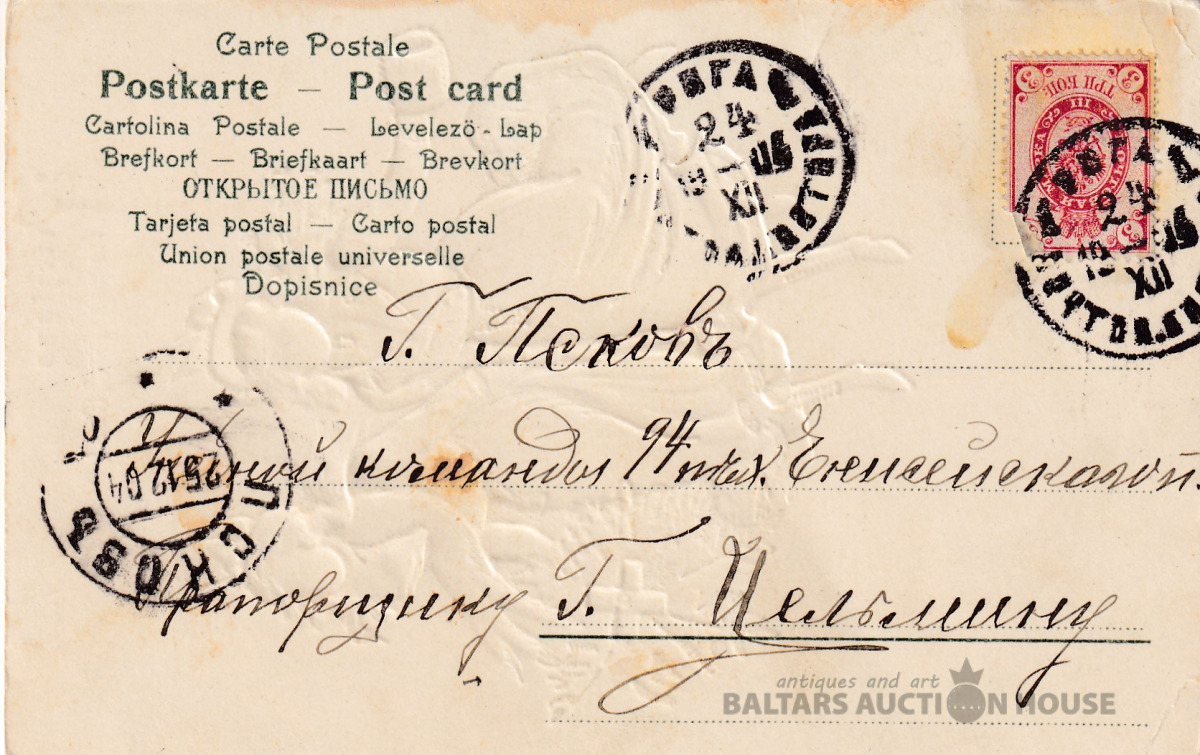 Carte Postale
Postkarte — Post card
Cartolina Postale — Levelező-Lap
Brefkort — Briefkaart — Brevkort
ОТКРЫТОЕ ПИСЬМО
Tarjeta postal — Carto postal
Union postale universelle
Dopisnice
РИГА
24
XII
ТРИ КОП
3
3
РИГА
24
XII
Г. Псковъ
ПСКОВЪ
25 12 04
командѣ 94 пѣх. Енисейской
Прапорщику Г. Цельмину
antiques and art
BALTARS AUCTION HOUSE